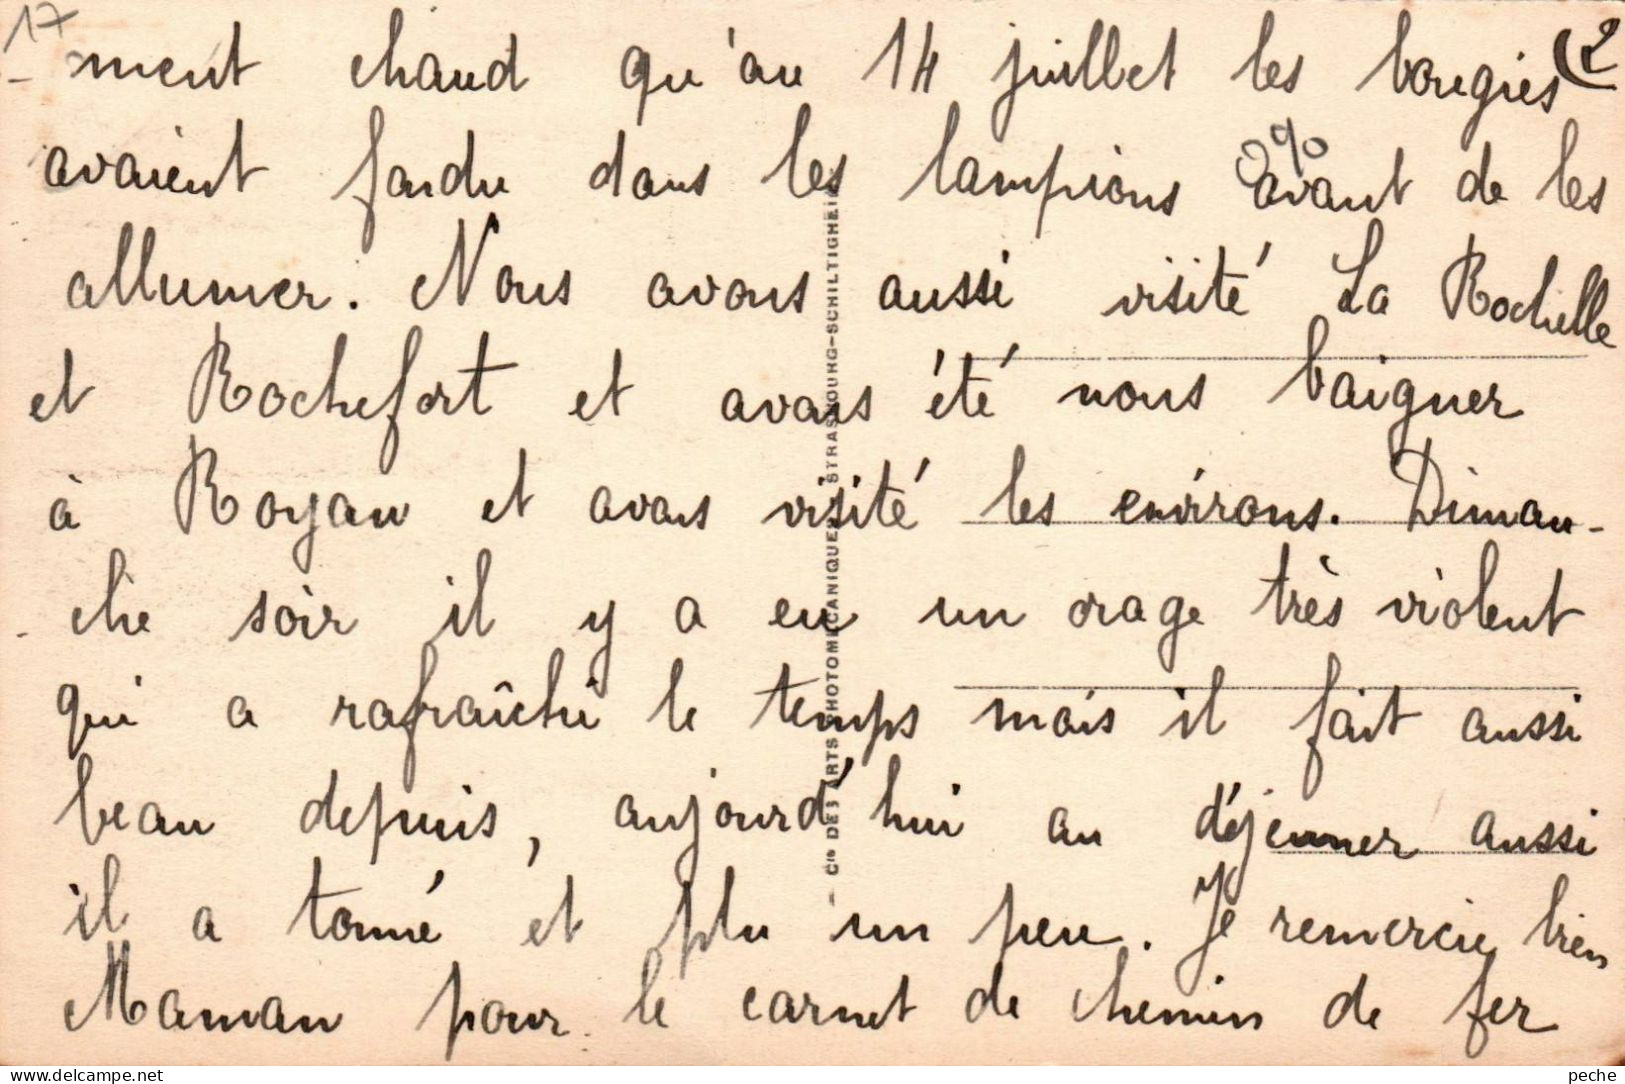 17
(2
ment chaud qu'au 14 juillet les bougies
0%
avaient fondu dans les lampions avant de les
allumer. Nous avons aussi visité La Rochelle
et Rochefort et avons été nous baigner
à Royan et avons visité les environs. Diman-
che soir il y a eu un orage très violent
qui a rafraîchi le temps mais il fait aussi
beau depuis, aujourd'hui au déjeuner aussi
il a tonné et plu un peu. Je remercie bien
Maman pour le carnet de chemin de fer
Cie DES ARTS PHOTOMECANIQUES STRASBOURG-SCHILTIGHEIM
peche